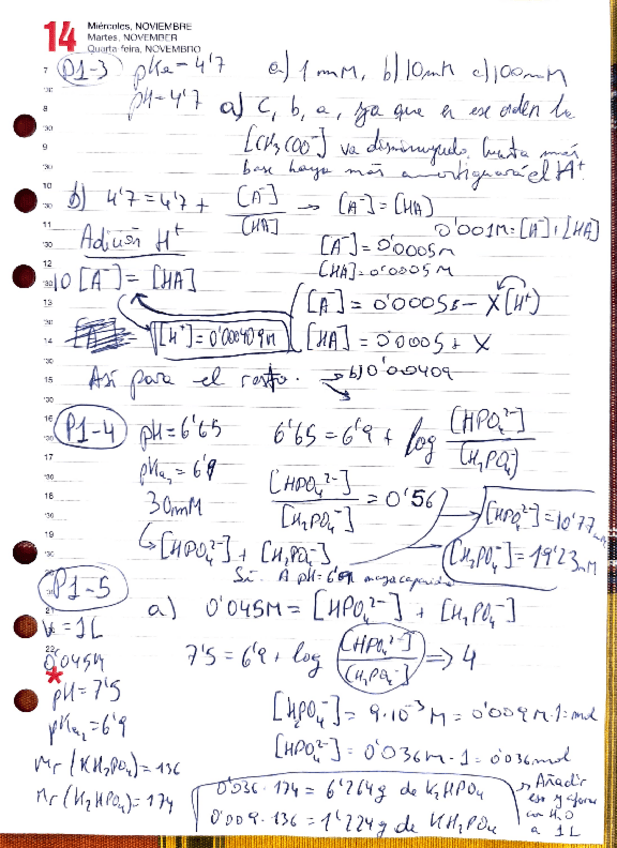 14 Miércoles, NOVIEMBRE
Martes, NOVEMBER
Quarta feira, NOVEMBRO
P1-3 pKa = 4'7 a) 1 mM, b) 10 mM c) 100 mM
pH = 4'7 a) c, b, a, ya que en ese orden la
[CH3COO-] va disminuyendo. Cuanta más
base haya más amortiguará el H+.
b) 4'7 = 4'7 + [A-]/[HA] → [A-] = [HA]
0'001M = [A-] + [HA]
Adición H+
[A-] = 0'0005 M
[HA] = 0'0005 M
10 [A-] = [HA]
[A-] = 0'0005 - X (H+)
[H+] = 0'000409 M
[HA] = 0'0005 + X
Así para el resto. → b) 0'00409
P1-4 pH = 6'65 6'65 = 6'9 + log [HPO4 2-]/[H2PO4-]
pKa2 = 6'9
30 mM
[HPO4 2-]/[H2PO4-] = 0'56
[HPO4 2-] = 10'77 mM
[H2PO4-] = 19'23 mM
[HPO4 2-] + [H2PO4-]
Sí. A pH = 6'9
P1-5
a) 0'045M = [HPO4 2-] + [H2PO4-]
V = 1 L
0'045M
7'5 = 6'9 + log [HPO4 2-]/[H2PO4-] ⇒ 4
*
pH = 7'5
pKa2 = 6'9
[H2PO4-] = 9·10-3 M = 0'009 M·1 = mol
[HPO4 2-] = 0'036 M·1 = 0'036 mol
Mr (KH2PO4) = 136
Mr (K2HPO4) = 174
0'036·174 = 6'264 g de K2HPO4
0'009·136 = 1'224 g de KH2PO4
→ Añadir
eso y aforar
con H2O
a 1 L